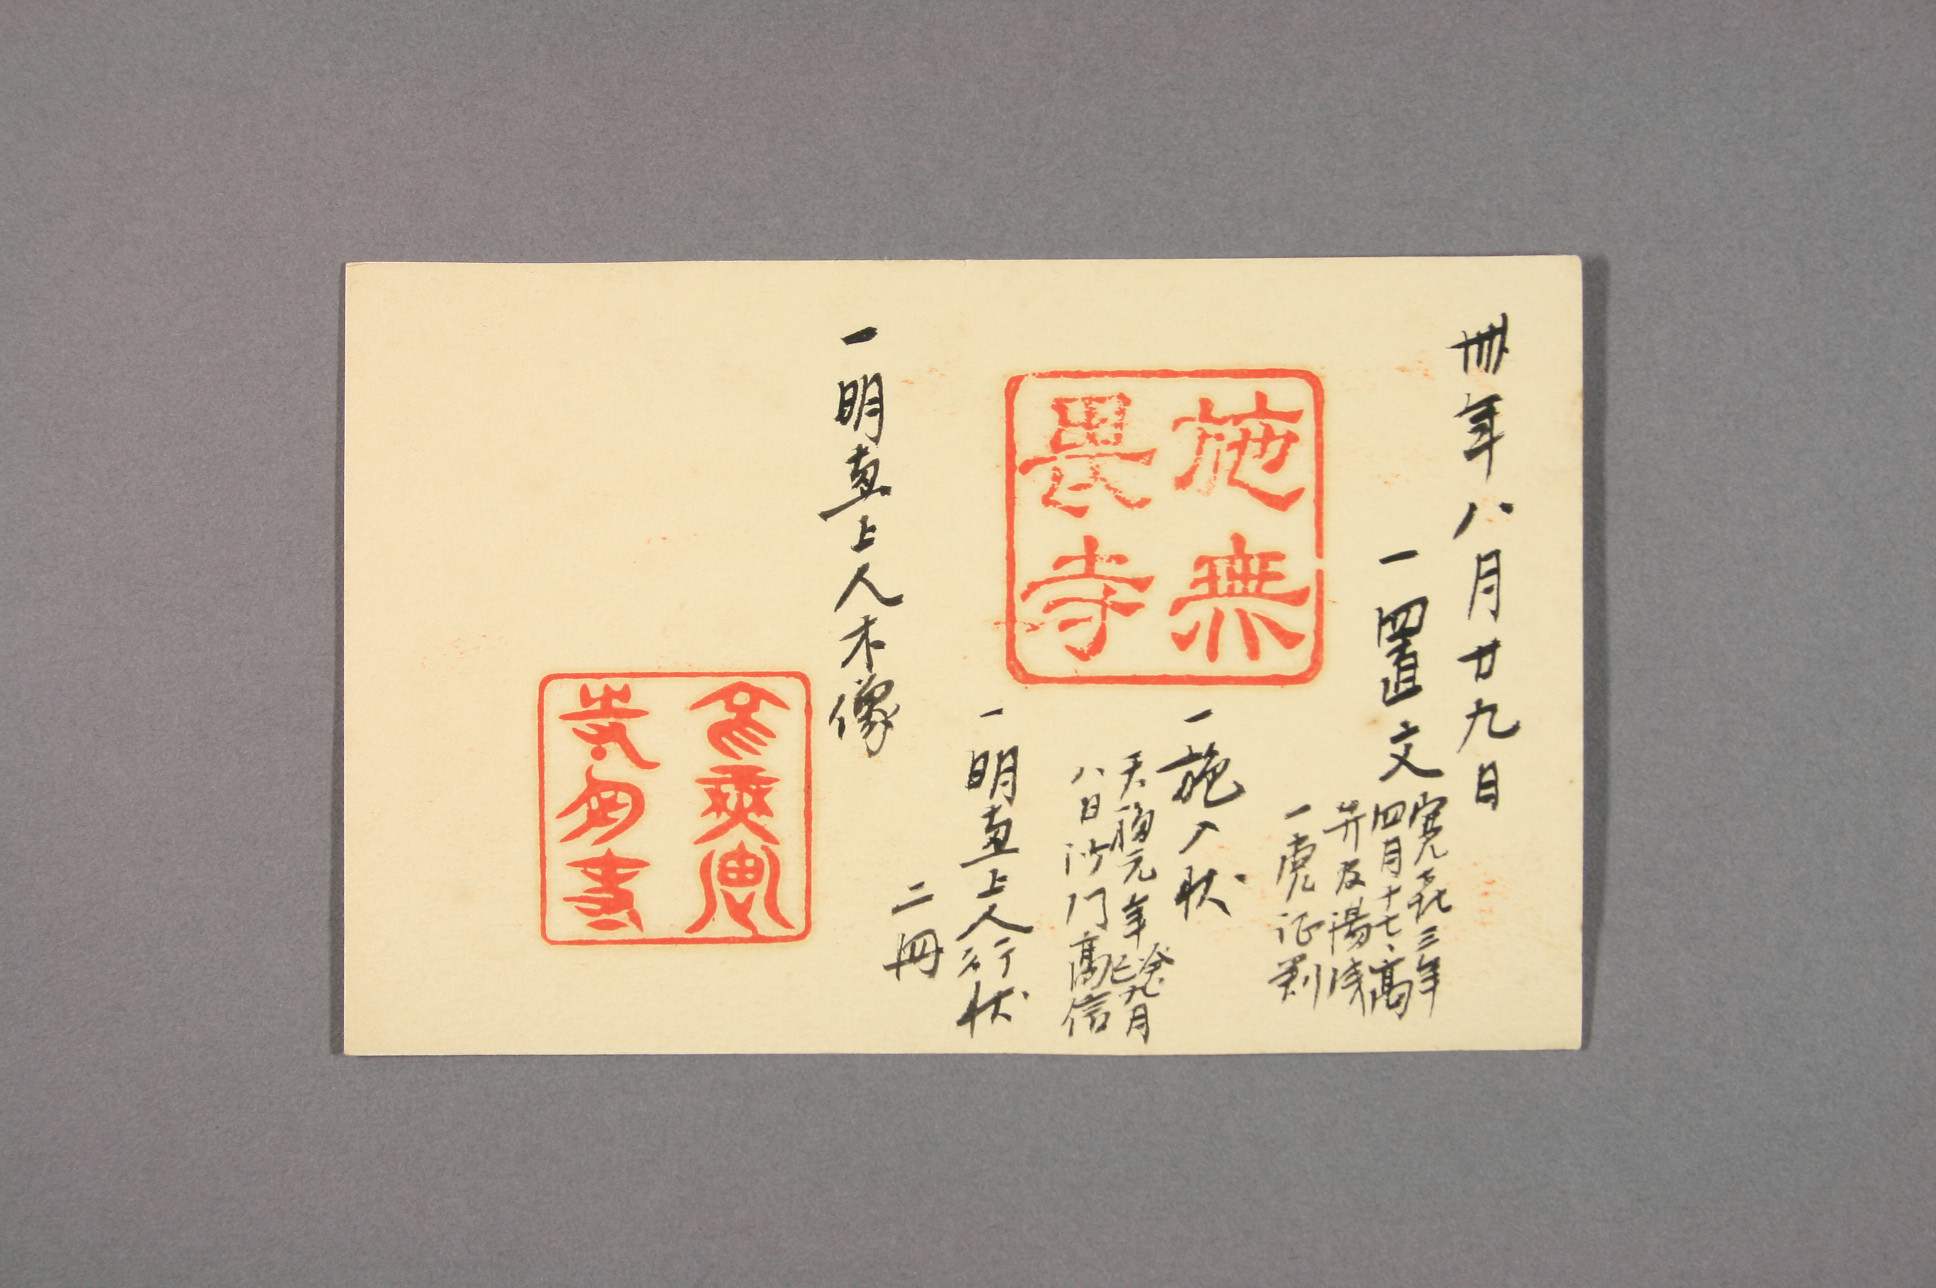 卌年八月廿九日
一置文
寛喜三年
四月十七、高
弁及湯浅
一党证判
施無
畏寺
一施入状
天福元年癸巳九月
八日沙门高信
一明恵上人行状
二冊
一明恵上人木像